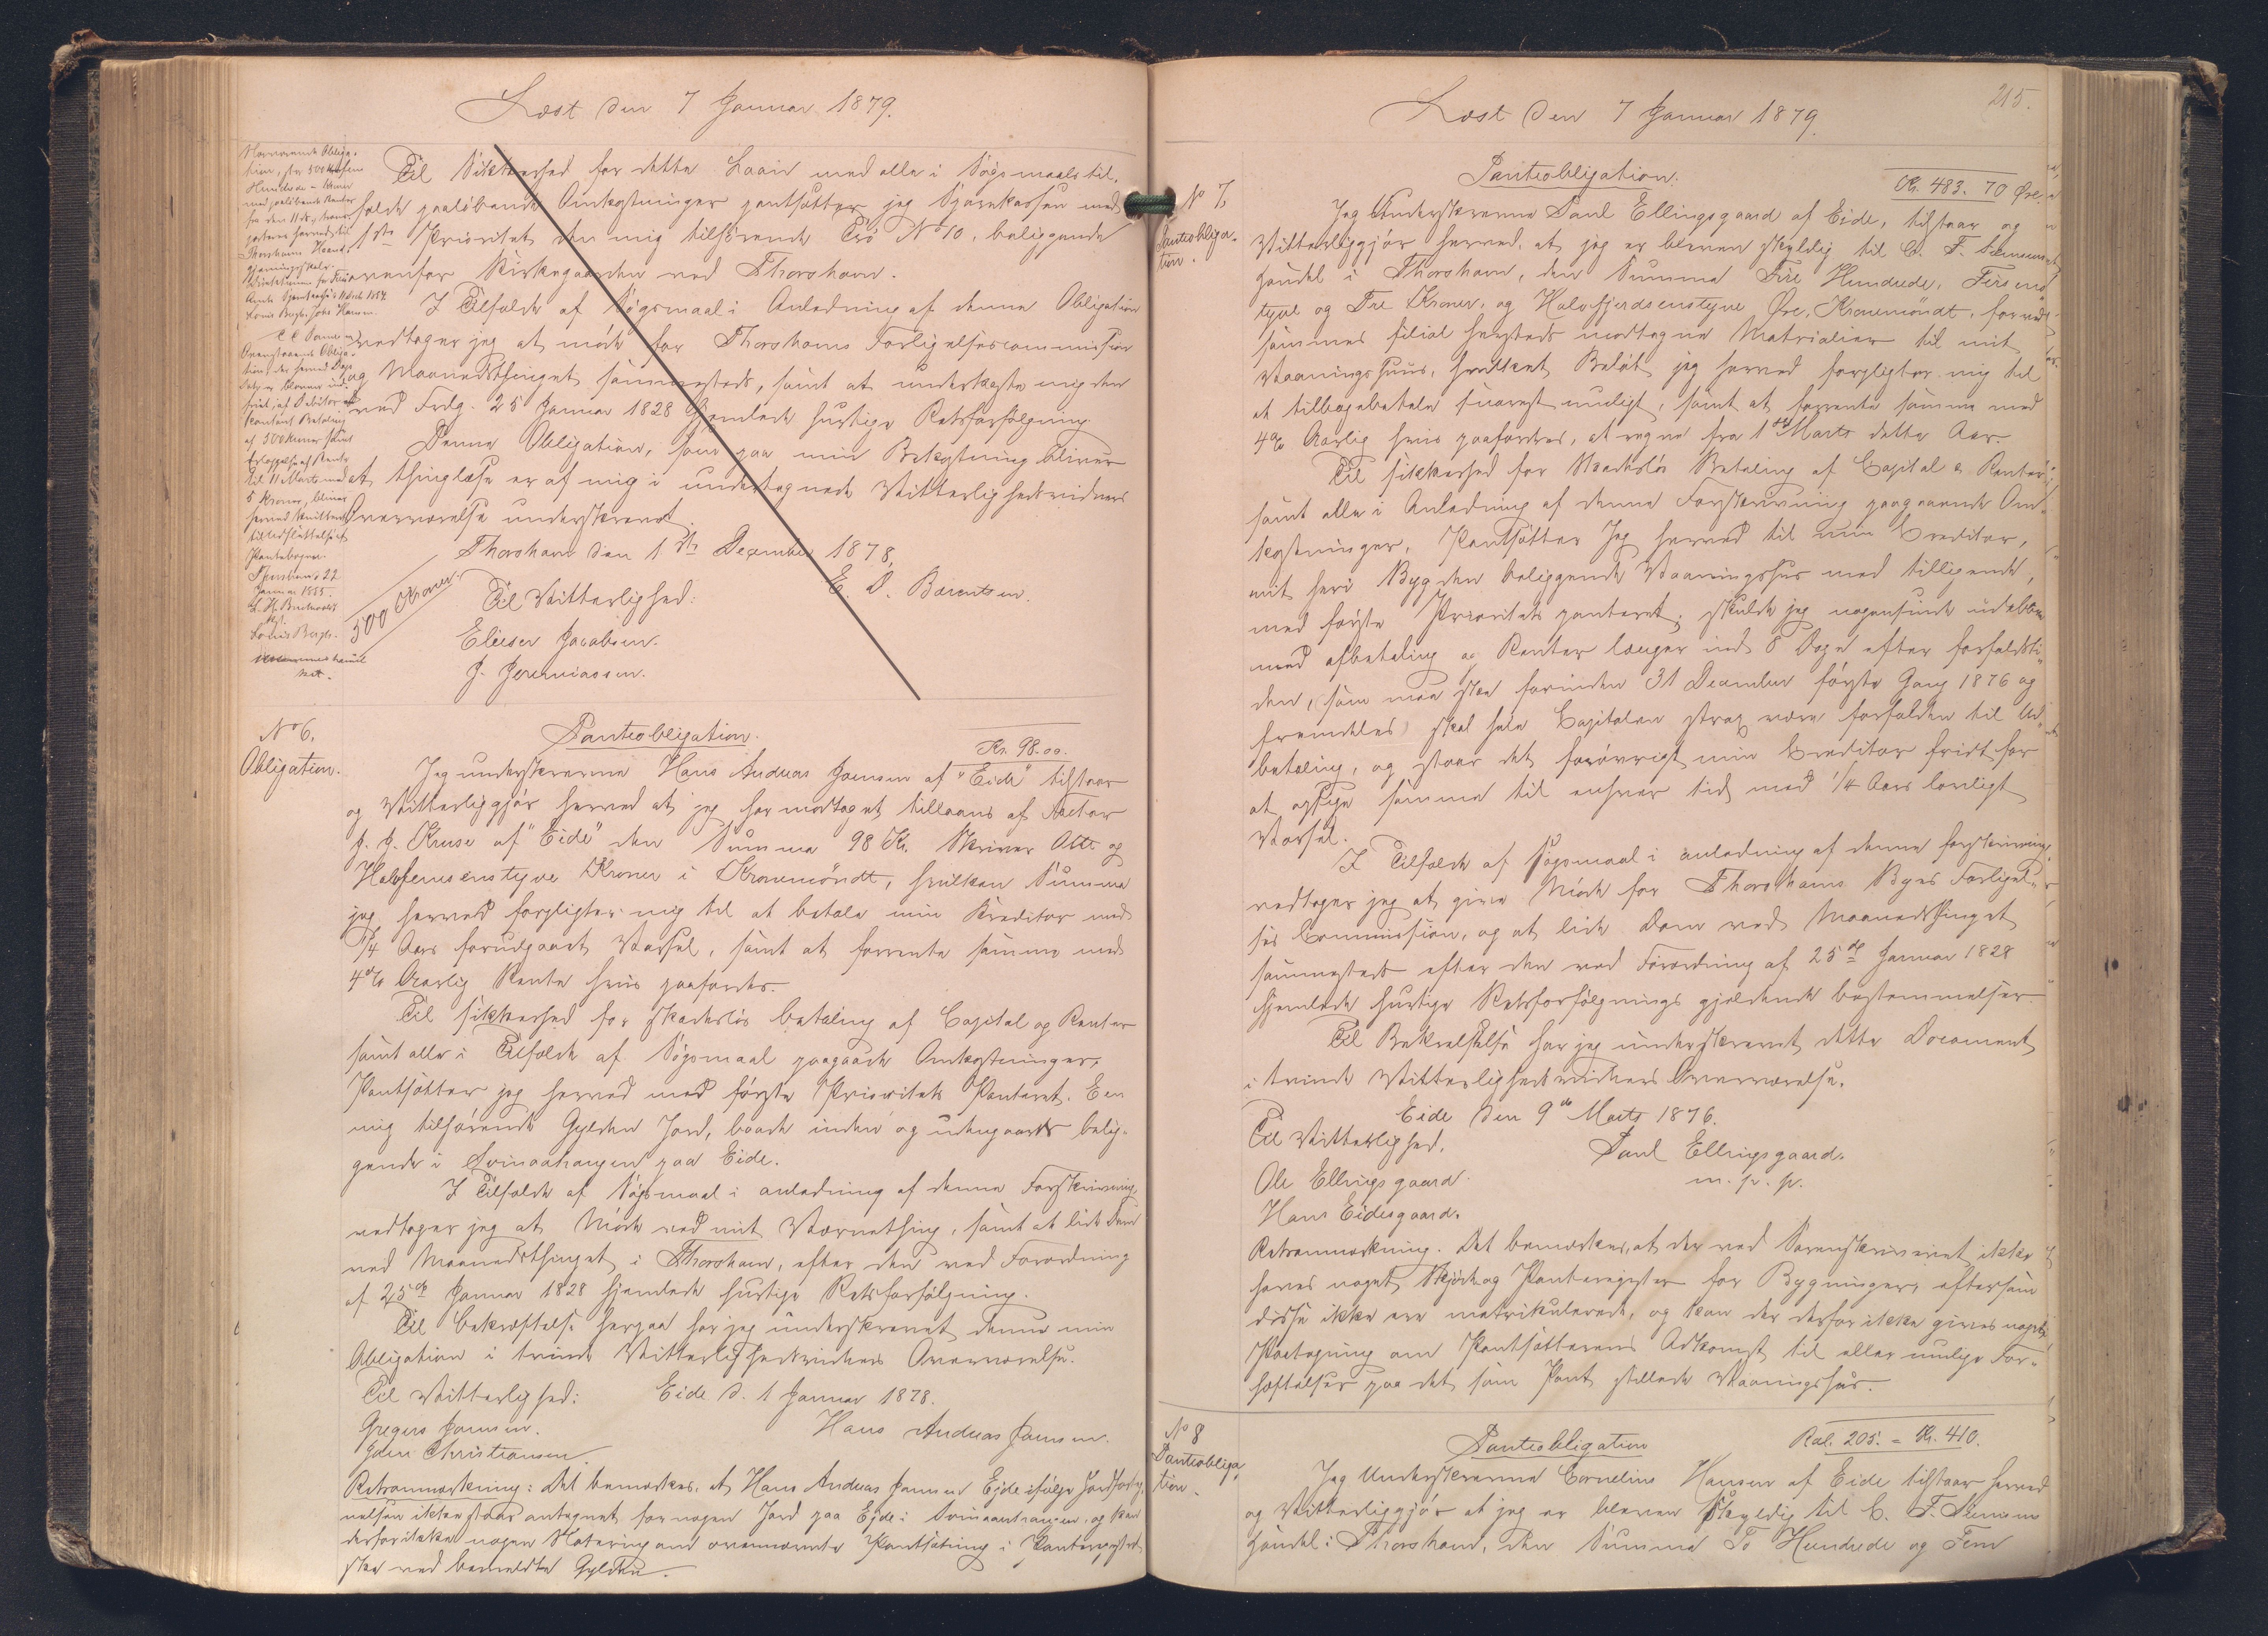 Læst den 7 Januar 1879.
Nærværende Obliga-
tion, stor 500 Kr fem
Hundrede Kroner
med paaløbende Renter
fra den 11 ds, trans-
porteres herved til
Thorshavns Haand-
gjerningsskole.
Direktionen for Færø
Amts Sparekasse 11 Marts 1884.
Louis Bergh. Johs Hansen.
Ovenstaaende Obliga-
tion, der herved
bliver ind-
friet, af Debitor
kontant Betaling
af 500 Kroner samt
Erlæggelse af Rente
til 11 Marts med
5 Kroner, bliver
herved kvitteret
til Udslettelse af
Pantebogen.
Thorshavn 22
Januar 1885.
Louis Bergh.
500 Kroner.
Til Sikkerhed for dette Laan med alle i Søgsmaalstil-
fælde paaløbende Omkostninger pantsætter jeg Sparekassen med
1ste Prioritet den mig tilhørende Trø No 10, beliggende
ovenfor Kirkegaarden ved Thorshavn.
I Tilfælde af Søgsmaal i Anledning af denne Obligation
vedtager jeg at møde for Thorshavns Forligelsescommission
og Maanedsthinget sammesteds, samt at underkaste mig den
ved Frdg. 25 Januar 1828 hjemlede hurtige Retsforfølgning.
Denne Obligation, som paa min Bekostning bliver
at thinglæse er af mig i undertegnede Vitterlighedsvidners
Overværelse underskrevet.
Thorshavn den 1ste December 1878,
E. D. Bærentsen.
Til Vitterlighed:
Elieser Jacobsen.
J. Jeremiassen.
No 6.
Obligation.
Panteobligation.
Kr. 98.00.
Jeg underskrevne Hans Andreas Joensen af "Eide" tilstaar
og Vitterliggjør herved at jeg har modtaget tillaans af Factor
J. J. Kruse af "Eide" den Summa 98 Kr. Skriver Otte og
Halvfemsenstyve Kroner i Kronemøndt, hvilken Summa
jeg herved forpligter mig til at betale min Kreditor med
1/4 Aars forudgaaet Varsel, samt at forrente samme med
4% Aarlig Rente hvis paafordes.
Til sikkerhed for skadesløs betaling af Capital og Renter
samt alle i Tilfælde af Søgsmaal paagaaede Omkostninger,
Pantsætter jeg herved med første Prioritets Panteret. En
mig tilhørende Gylden Jord, baade inden og udengaards belig-
gende i Svinaahaugen paa Eide.
I Tilfælde af Søgsmaal i anledning af denne Forskrivning,
vedtager jeg at Møde ved mit Værnething, samt at lide Dom
ved Maanedsthinget i Thorshavn, efter den ved Forordning
af 25de Januar 1828 hjemlede hurtige Retsforfølgning.
Til bekræftelse herpaa har jeg underskrevet denne min
Obligation i tvende Vitterlighedsvidners Overværelse.
Til Vitterlighed: Eide d. 1 Januar 1878.
Gregers Joensen. Hans Andreas Joensen.
Joen Christiansen.
Retsanmærkning: Det bemærkes, at Hans Andreas Joensen Ejde ifølge Jordforteg-
nelsen ikke staar antegnet for nogen Jord paa Ejde i Svinaahaugen, og kan
derfor ikke nogen Notering om ovennævnte Pantsætning i Panteregistret
ske ved bemeldte Gylden.
Læst den 7 Januar 1879.
215.
No 7,
Pantobliga-
tion.
Panteobligation.
Kr. 483. 70 Øre.
Jeg Underskrevne Poul Ellingsgaard af Eide, tilstaar og
Vitterliggjør herved, at jeg er bleven skyldig til C. F. Siemsens
handel i Thorshavn, den Summa Fire Hundrede, Firsens-
tyve og Tre Kroner, og Halvfjerdsenstyve Øre, Kronemøndt, for ved
sammes filial hersteds modtagne Matrialier til mit
Vaaningshuus, hvilket Beløb jeg herved forpligter mig til
at tilbagebetale snarest muligt, samt at forrente samme med
4% Aarlig hvis paafordres, at regne fra 1ste Marts dette Aar.
Til sikkerhed for Skadesløs Betaling af Capital & Renter
samt alle i Anledning af denne Forskrivning paagaaende Om-
kostninger, Pantsætter Jeg herved til min Creditor,
mit heri Bygden beliggende Vaaningshus med tilligende,
med første Prioritets panteret; skulde jeg nogensinde udebliven
med afbetaling og Renter længer end 8 Dage efter forfaldsti-
den, (som maa ske forinden 31 December første Gang 1876 og
fremdeles) skal hele Capitalen strax være forfalden til Ud-
betaling, og staar det forøvrigt min Creditor fridt for
at opsige samme til enhver tid med 1/4 Aars lovligt
Varsel.
I Tilfælde af Søgsmaal i anledning af denne forskrivning,
vedtager jeg at give Møde for Thorshavns Byes Forligel-
ses Commission, og at lide Dom ved Maanedsthinget
sammesteds efter den ved Forordning af 25de Januar 1828
hjemlede hurtige Retsforfølgnings gjældende bestemmelser.
Til Bekræftelse har jeg underskrevet dette Document
i tvende Vitterlighedsvidners Overværelse.
Eide den 9de Marts 1876.
Til Vitterlighed, Poul Ellingsgaard.
Ole Ellingsgaard. m. f. p.
Hans Eidesgaard.
Retsanmærkning. Det bemærkes, at der ved Sorenskriveriet ikke
haves noget Skjøde og Panteregister for Bygninger, eftersom
disse ikke ere matrikulerede, og kan der derfor ikke gives nogen
Paategning om Pantsætterens Adkomst til eller mulige For-
hæftelser paa det som Pant stillede Vaaningshus.
No 8
Panteobliga-
tion.
Panteobligation
Rdl. 205. = Kr. 410.
Jeg Underskrevne Cornelius Hansen af Eide tilstaar herved
og Vitterliggjør at jeg er bleven skyldig til C. F. Siemsen
handel i Thorshavn, den Summa To Hundrede og Fem